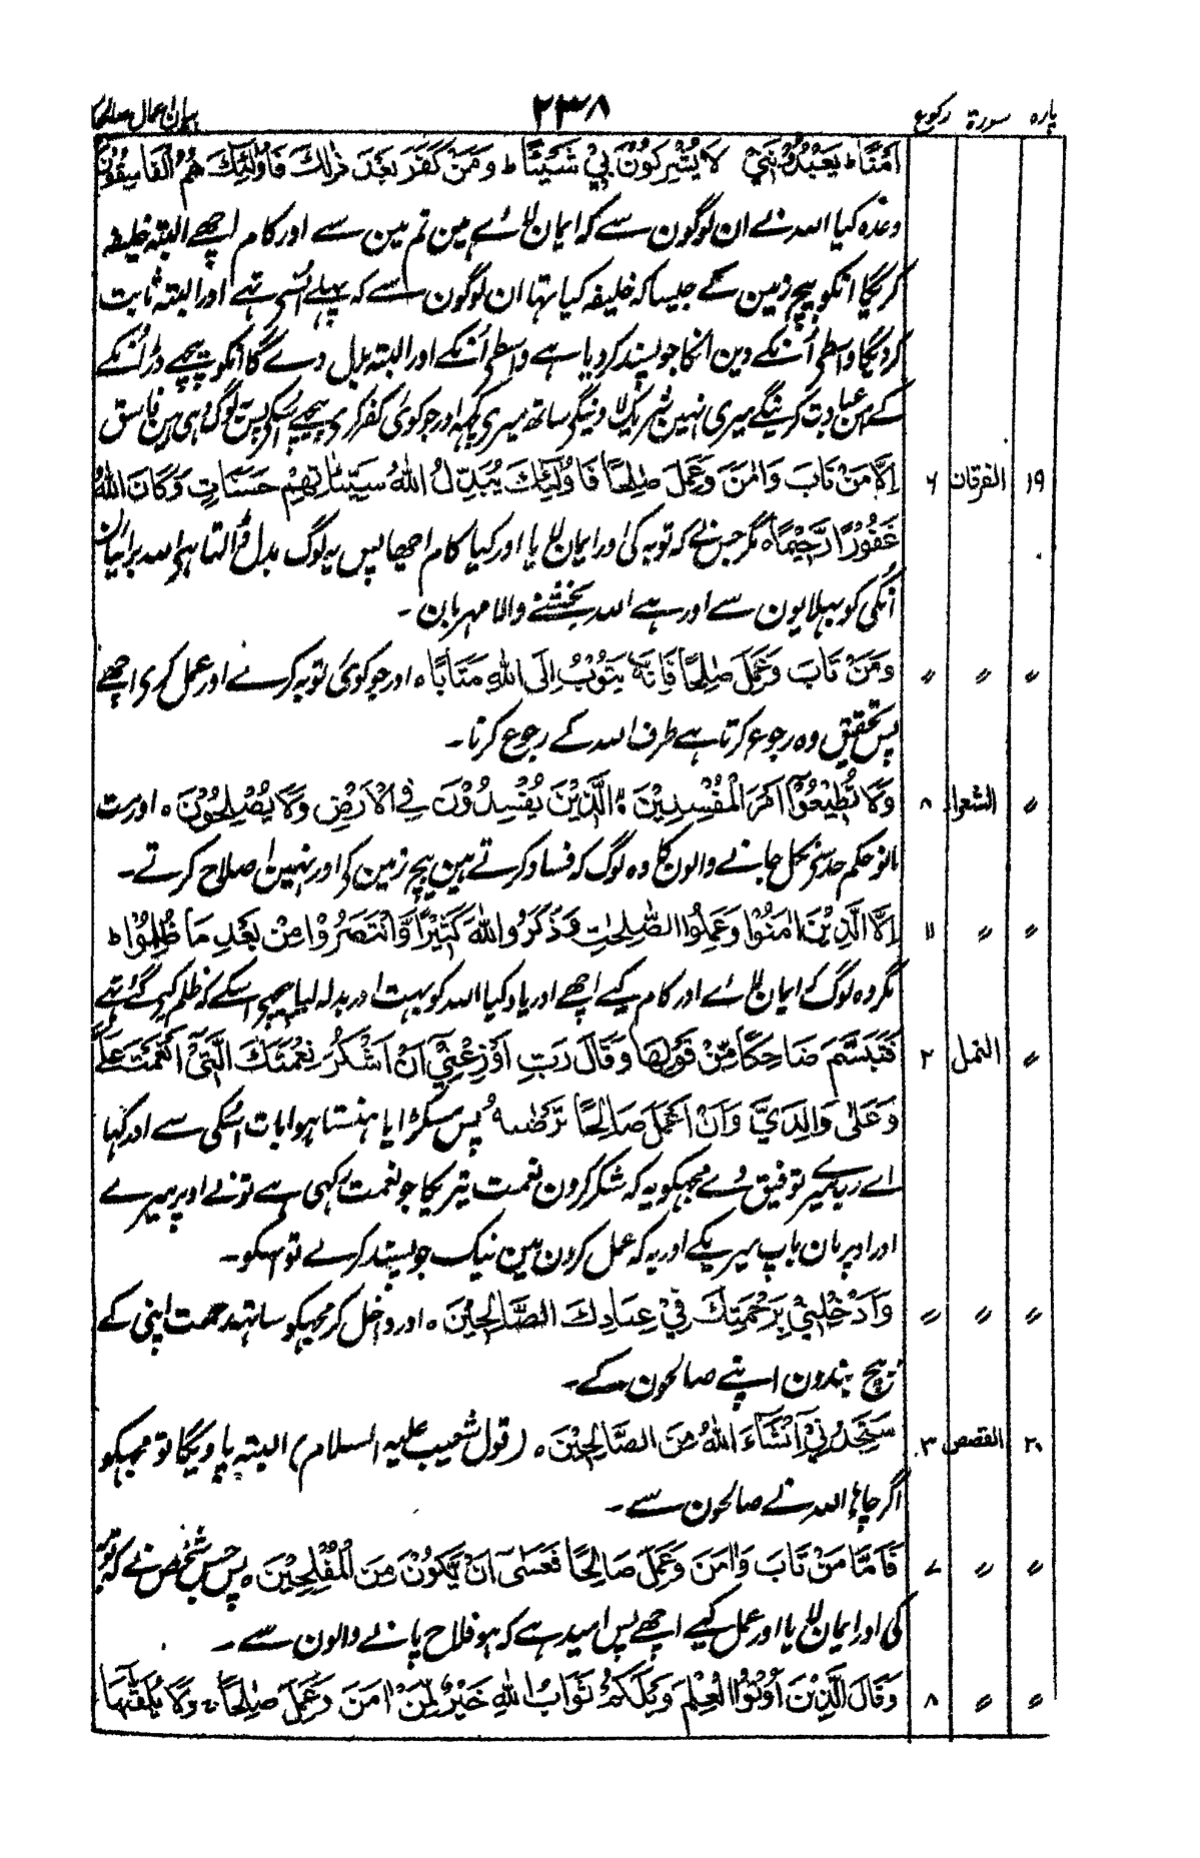 پارہ سورۃ رکوع ۲۳۸ بیان اعمال صالحہ
اٰمَنًا ط یَعْبُدُوْنَنِیْ لَا یُشْرِکُوْنَ بِیْ شَیْئًا ط وَمَنْ کَفَرَ بَعْدَ ذٰلِکَ فَاُولٰٓئِکَ هُمُ الْفَاسِقُوْنَ
وعدہ کیا اللہ نے ان لوگون سے کہ ایمان لائے ہین تم مین سے اور کام اچھے البتہ خلیفہ
کریگا انکو بیچ زمین کے جیسا کہ خلیفہ کیا تہا ان لوگون سے کہ پہلے اُنسی تہے اور البتہ ثابت
کردیگا واسطی اُنکے دین انکا جو پسند کردیا ہے واسطی اُنکے اور البتہ بدل دے گا انکو پیچہے ڈر اُنکے
کے امن عبادت کرینگے میری نہین شریک لاوینگے ساتھ میری کچہہ اور جو کوئی کفر کری پیچہے اسکے پس یہ لوگ وہی ہین فاسق
۱۹ الفرقان ۶ اِلَّا مَنْ تَابَ وَاٰمَنَ وَعَمِلَ صٰلِحًا فَاُولٰٓئِکَ یُبَدِّلُ اللّٰهُ سَیِّئٰاتِهِمْ حَسَنَاتٍ وَکَانَ اللّٰهُ
غَفُوْرًا رَّحِیْمًا ہ مگر جس نے کہ توبہ کی اور ایمان لایا اور کیا کام اچھا پس یہ لوگ بدل ڈالتا ہی اللہ برائیان
اُنکی کو بہلایون سے اور ہے اللہ بخشنے والا مہربان ۔
〃 〃 〃 وَمَنْ تَابَ وَعَمِلَ صٰلِحًا فَاِنَّهٗ یَتُوْبُ اِلَی اللّٰهِ مَتَابًا ہ اور جو کوئی توبہ کرے اور عمل کری اچھے
پس تحقیق وہ رجوع کرتا ہے طرف اللہ کے رجوع کرنا ۔
〃 الشعراء ۸ وَلَا تُطِیْعُوْٓا اَمْرَ الْمُفْسِدِیْنَ ہ الَّذِیْنَ یُفْسِدُوْنَ فِی الْاَرْضِ وَلَا یُصْلِحُوْنَ ہ اور مت
مانو حکم حد سے نکل جانے والون کا وہ لوگ کہ فساد کرتے ہین بیچ زمین کے اور نہین اصلاح کرتے ۔
〃 〃 ۱۱ اِلَّا الَّذِیْنَ اٰمَنُوْا وَعَمِلُوا الصّٰلِحٰتِ وَذَکَرُوا اللّٰهَ کَثِیْرًا وَّانْتَصَرُوْا مِنْ بَعْدِ مَا ظُلِمُوْا ط
مگر وہ لوگ کہ ایمان لائے اور کام کیے اچھے اور یاد کیا اللہ کو بہت اور بدلہ لیا پیچہے اسکے کہ ظلم کیے گئے تہے
〃 النمل ۲ فَتَبَسَّمَ ضَاحِکًا مِّنْ قَوْلِهَا وَقَالَ رَبِّ اَوْزِعْنِیْٓ اَنْ اَشْکُرَ نِعْمَتَکَ الَّتِیْٓ اَنْعَمْتَ عَلَیَّ
وَعَلٰی وَالِدَیَّ وَاَنْ اَعْمَلَ صَالِحًا تَرْضٰىهُ پس مسکرایا ہنستا ہوا بات اُسکی سے اور کہا
اے رب میرے توفیق دے مجہکو یہ کہ شکر کرون نعمت تیریکا جو نعمت رکہی ہے تونے اوپر میرے
اور اوپر مان باپ میریکے اور یہ کہ عمل کرون مین نیک جو پسند کرے تو اسکو ۔
〃 〃 〃 وَاَدْخِلْنِیْ بِرَحْمَتِکَ فِیْ عِبَادِکَ الصَّالِحِیْنَ ہ اور داخل کر مجہکو ساتہہ رحمت اپنی کے
بیچ بندون اپنے صالحون کے ۔
۲۰ القصص ۳ سَتَجِدُنِیْٓ اِنْشَآءَ اللّٰهُ مِنَ الصَّالِحِیْنَ ہ (قول شعیب علیہ السلام) البتہ پاویگا تو مجہکو
اگر چاہا اللہ نے صالحون سے ۔
〃 〃 ۷ فَاَمَّا مَنْ تَابَ وَاٰمَنَ وَعَمِلَ صَالِحًا فَعَسٰٓی اَنْ یَّکُوْنَ مِنَ الْمُفْلِحِیْنَ ہ پس جس شخص نے کہ توبہ
کی اور ایمان لایا اور عمل کیے اچھے پس امید ہے کہ ہو فلاح پانے والون سے ۔
〃 〃 ۸ وَقَالَ الَّذِیْنَ اُوْتُوا الْعِلْمَ وَیْلَکُمْ ثَوَابُ اللّٰهِ خَیْرٌ لِّمَنْ اٰمَنَ وَعَمِلَ صٰلِحًا ج وَلَا یُلَقّٰهَآ